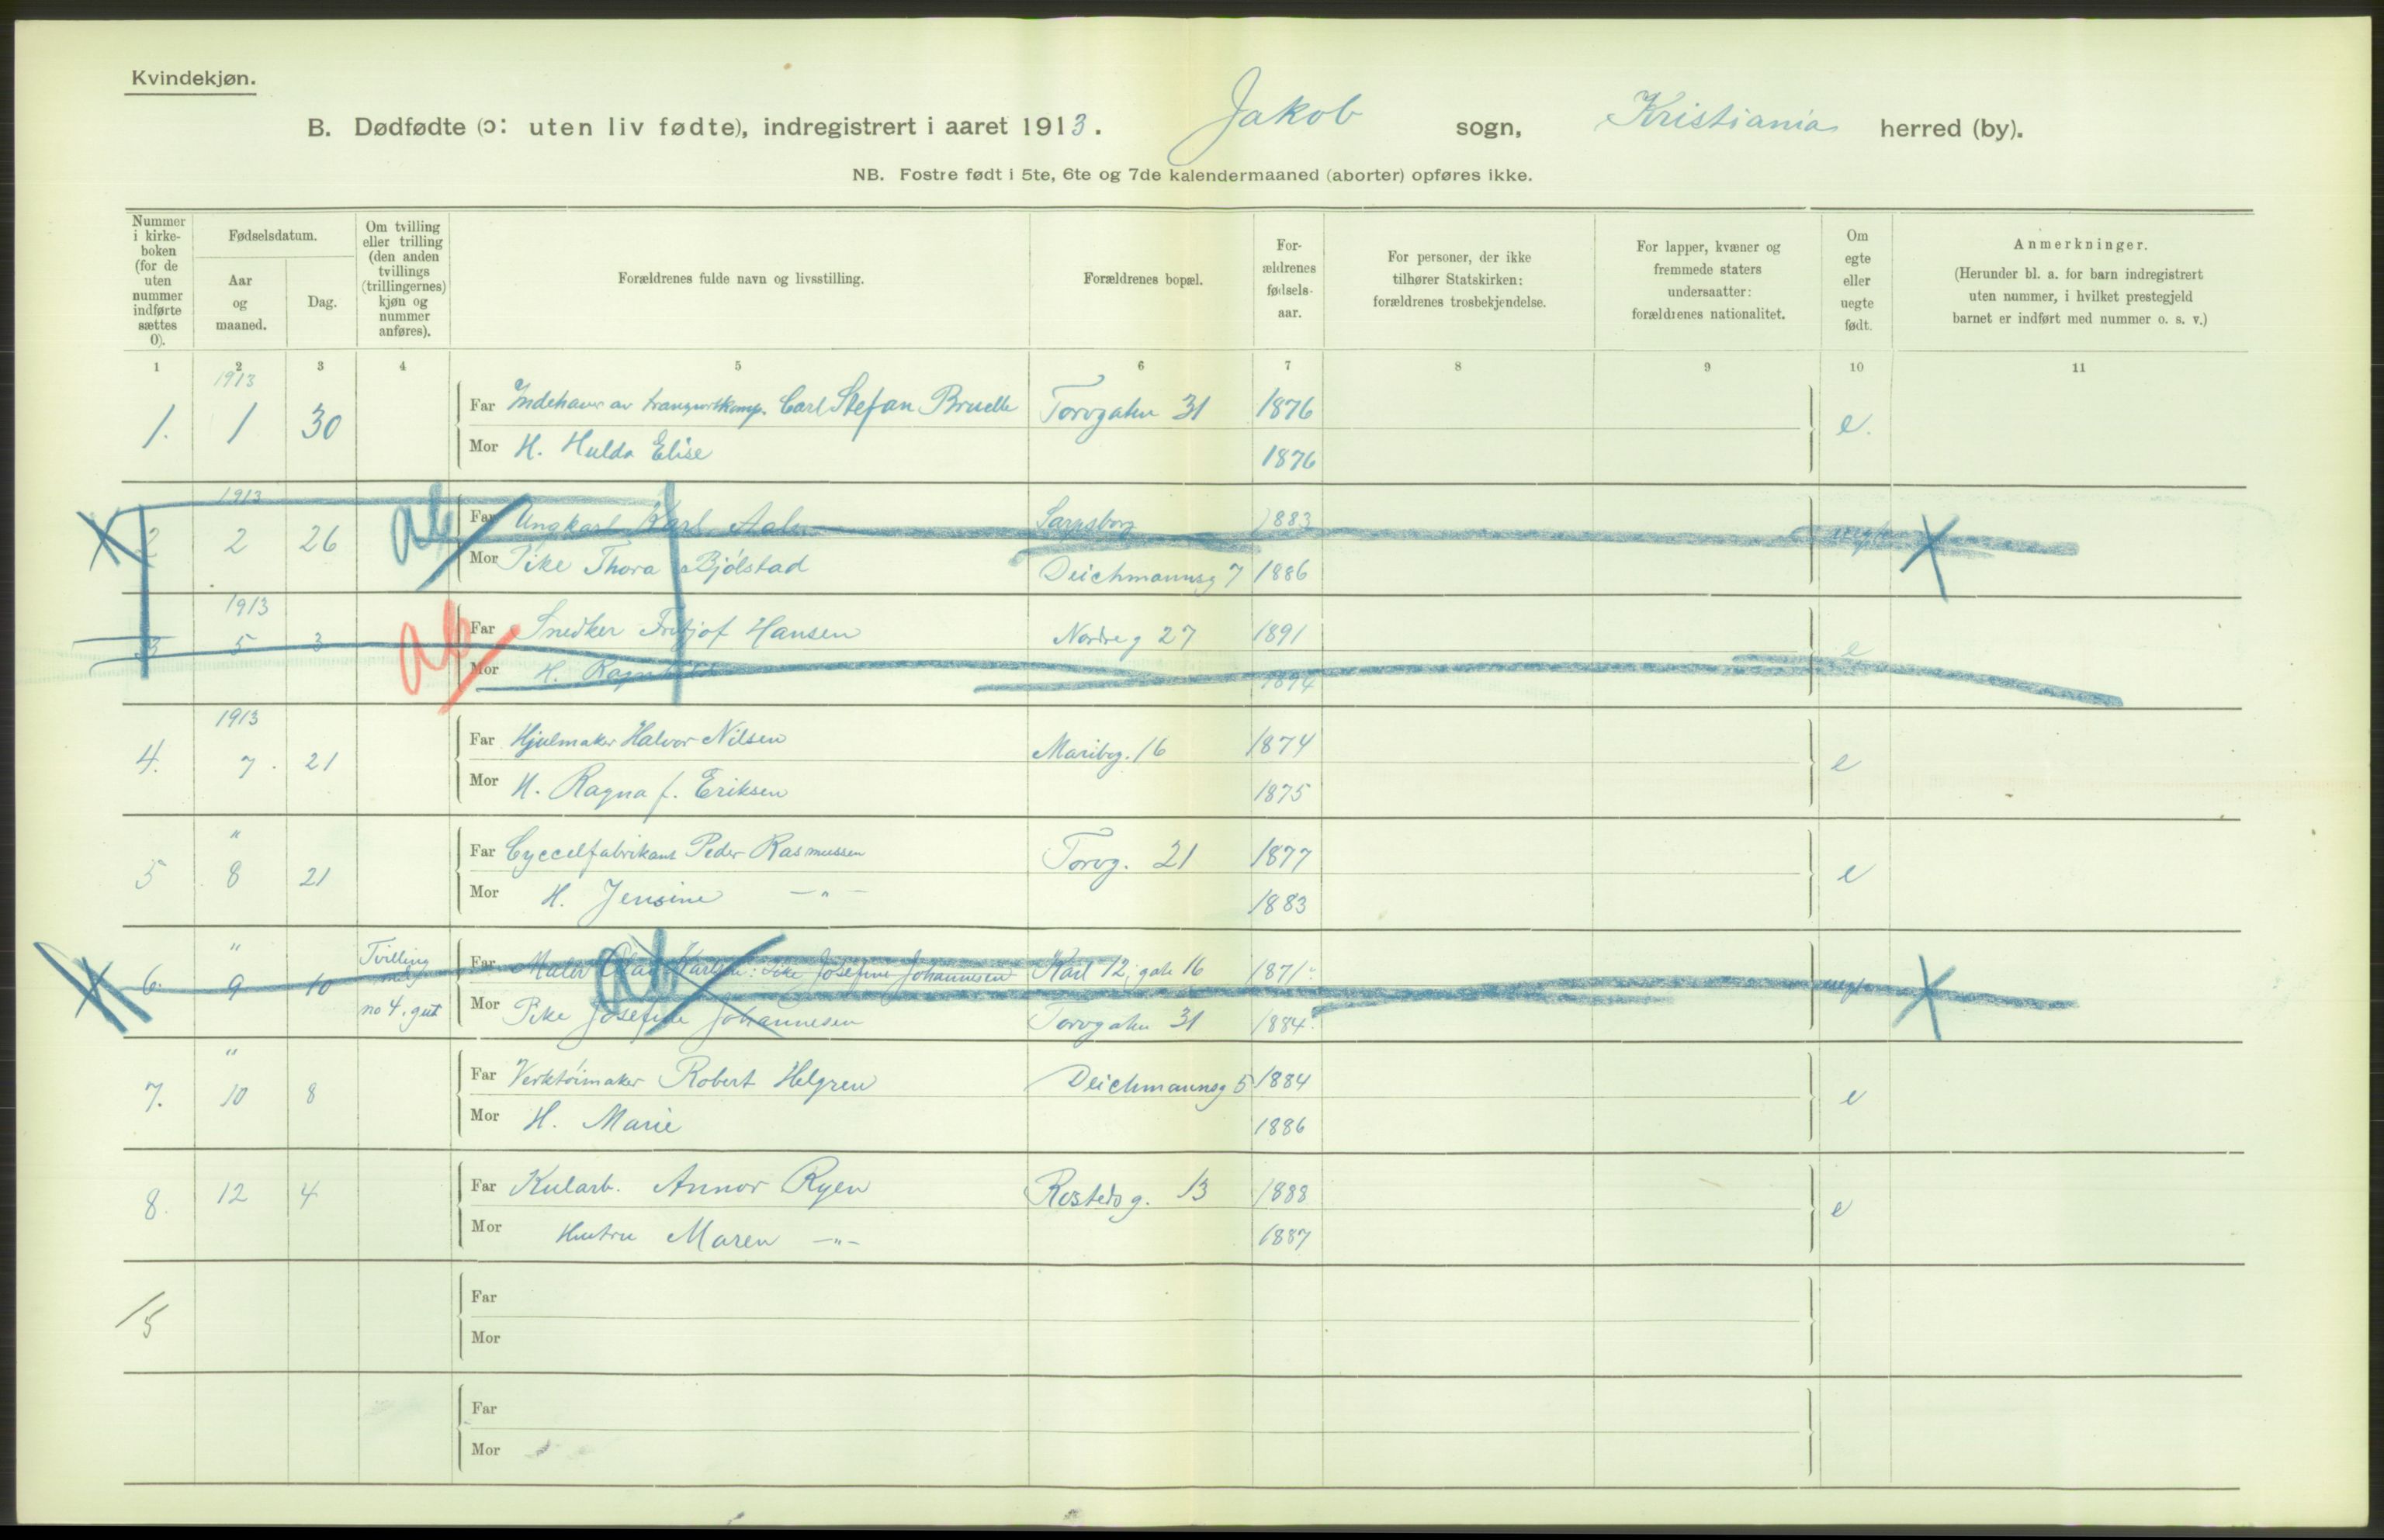 Kvindekjøn.
B. Dødfødte (ɔ: uten liv fødte), indregistrert i aaret 1913. Jakob sogn, Kristiania herred (by).
NB. Fostre født i 5te, 6te og 7de kalendermaaned (aborter) opføres ikke.
Nummer i kirke- boken (for de uten nummer indførte sættes 0).
Fødselsdatum.
Aar og maaned.
Dag.
Om tvilling eller trilling (den anden tvillings (trillingernes) kjøn og nummer anføres).
Forældrenes fulde navn og livsstilling.
Forældrenes bopæl.
For- ældrenes fødsels- aar.
For personer, der ikke tilhører Statskirken: forældrenes trosbekjendelse.
For lapper, kvæner og fremmede staters undersaatter: forældrenes nationalitet.
Om egte eller uegte født.
Anmerkninger.
(Herunder bl. a. for barn indregistrert uten nummer, i hvilket prestegjeld barnet er indført med nummer o. s. v.)
1 2 3 4 5 6 7 8 9 10 11
1913
1. 1 30 Far Indehaver av transportkomp. Carl Stefan Bruelle Torvgaten 31 1876 e.
Mor H. Hulda Elise 1876
1913
2 2 26 ab Far Ungkarl Karl Sarpsborg 1883 uegte
Mor Pike Thora Bjölstad Deichmannsg 7 1886
1913
3 5 3 ab Far Snedker Fritjof Hansen Nordre g 27 1891 e
Mor H. 1894
1913
4. 7. 21 Far Hjulmaker Halvor Nilsen Maribog. 16 1874 e
Mor H. Ragna f. Eriksen 1875
"
5 8 21 Far Cyccelfabrikant Peder Rasmussen Torvg. 21 1877 e
Mor H. Jensine —"— 1883
"
6. 9 10 Tvilling med no 4. gut ab Far Maler Olaf Karlsen: Pike Josefine Johannesen Karl 12; gate 16 1871 uegte
Mor Pike Josefine Johannesen Torvgaten 31 1884.
"
7. 10 8 Far Verktöimaker Robert Helgren Deichmannsg 5 1884 e
Mor H. Marie 1886
8. 12 4 Far Kularb. Annor Ryen Rosteds g. 13 1888 e
Mor Hustru Maren —"— 1887
/5 Far
Mor
Far
Mor